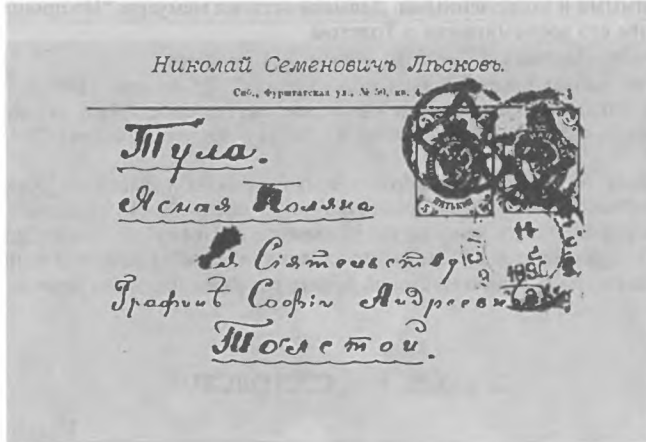 Николай Семеновичъ Лѣсковъ.
Спб., Фурштатская ул., № 50, кв. 4.
Тула.
Ясная Поляна
Ея Сіятельству
Графинѣ Софіи Андреевнѣ
Толстой.
11
1890